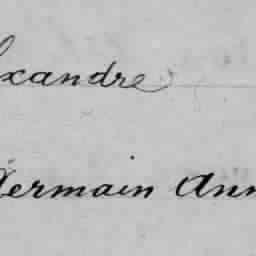 exandre
Germain Ann